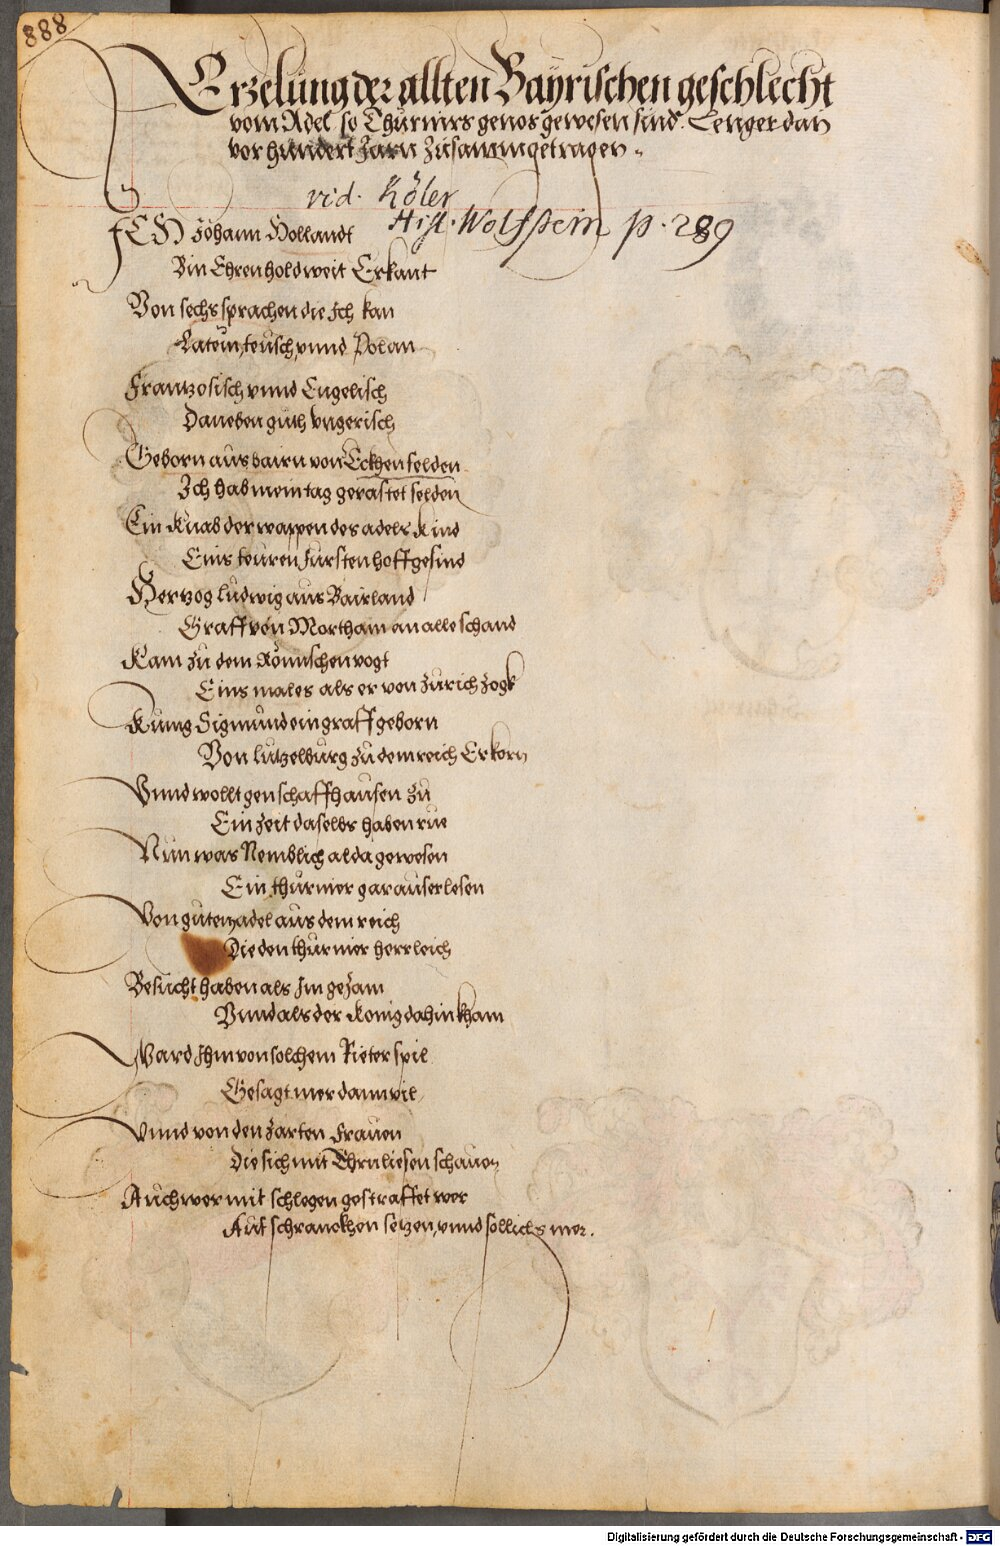 888
Erzelung der allten Bayrischen geschlecht
vom Adel so Thurniers genos gewesen sind. Lenger dan
vor hundert Jarn zusammgetragen.
vid. Köler
Hist. Wolfstein p. 289
ICH Johann Hollandt
Bin Ehrenhold weit Erkant
Von sechs sprachen die Ich kan
Latein, teusch, vnnd Polan
Frantzosisch vnnd Engelisch
Daneben guth vngerisch
Geborn aus bairn von Eckhenfelden
Ich hab mein tag gerastet selden
Ein Knab der wappen des adels Kind
Eins teuren Fursten hoffgesind
Hertzog ludwig aus Bairland
Graff von Mortham an alle schand
Kam zu dem Römischen vogt
Eins males als er von Zurich zogk
Kunig Sigmund ein graff geborn
Von lutzelburg zu dem reich Erkorn
Vnnd wollt gen schaffhausen zu
Ein Zeit daselbs haben rue
Nun was Nemblich alda gewesen
Ein thurnier gar auserlesen
Von guten adel aus dem reich
Die den thurnier herrleich
Besucht haben als Im gezam
Vnnd als der Konig dahin kham
Ward Ihm von solchem Rieterspil
Gesagt mer dann vil
Vnnd von den zarten Frauen
Die sich mit Ehrn liesen schauen
Auch wer mit schlegen gestraffet wer
Auf schranckhen setzen, vnnd sollichs mer.
Digitalisierung gefördert durch die Deutsche Forschungsgemeinschaft - DFG